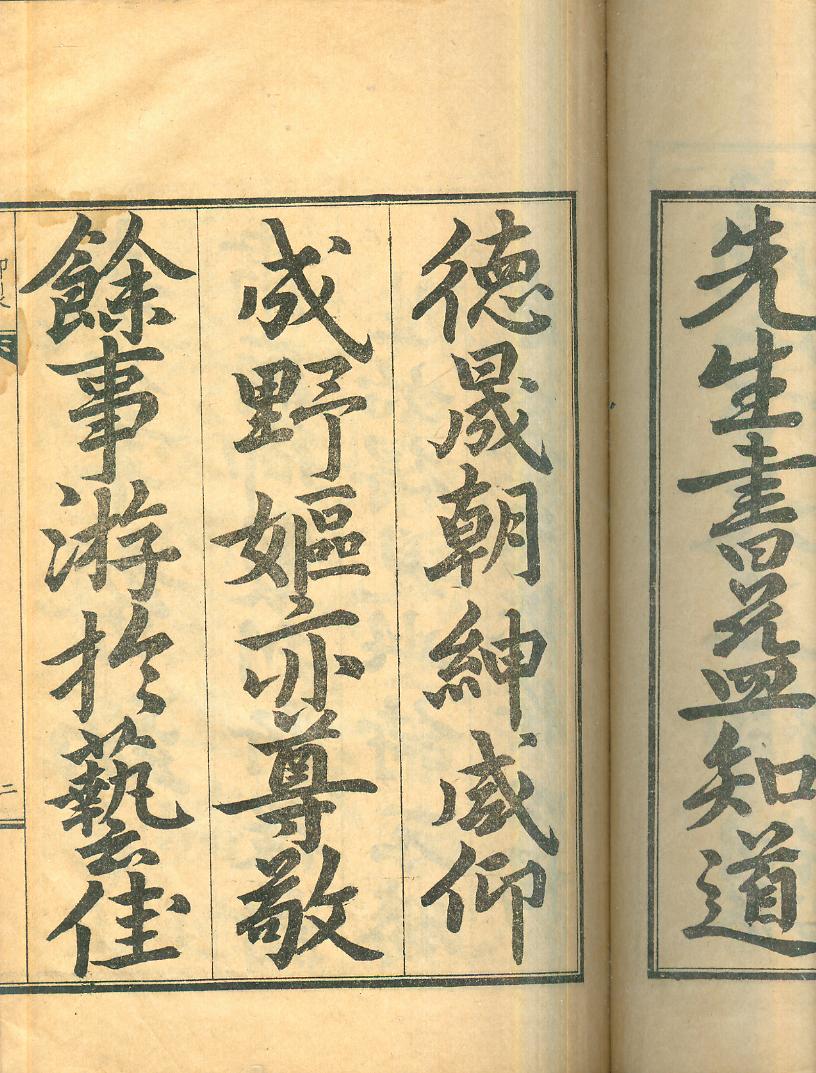 先生書益知道
德晟朝紳咸仰
成野嫗亦尊敬
餘事游於藝佳
二